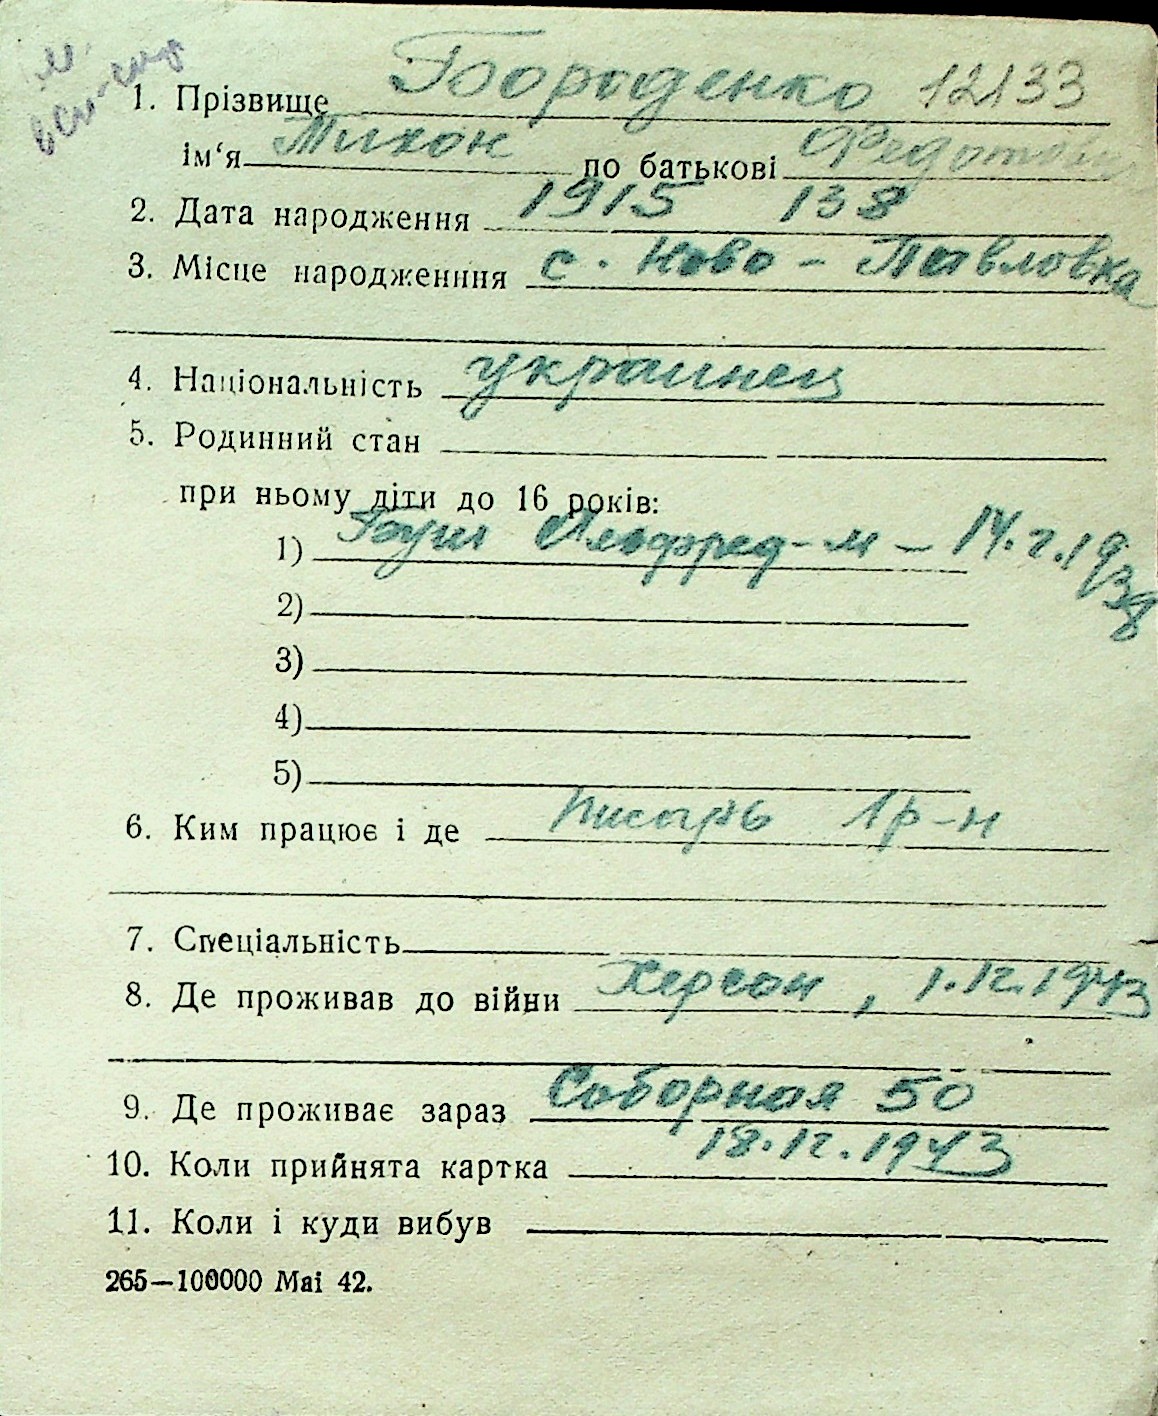 м.
1. Прізвище Бороденко 12133
ім‘я Тихон по батькові Федотов
2. Дата народження 1915 138
3. Місце народженння с. Ново - Павловка
4. Національність украинец
5. Родинний стан
при ньому діти до 16 років:
1) Альфред - м - 14.г.1938
2)
3)
4)
5)
6. Ким працює і де писарь 1р-н
7. Спеціальність
8. Де проживав до війни Херсон, 1.12.1943
9. Де проживає зараз Соборная 50
10. Коли прийнята картка 18.12.1943
11. Коли і куди вибув
265—100000 Mai 42.